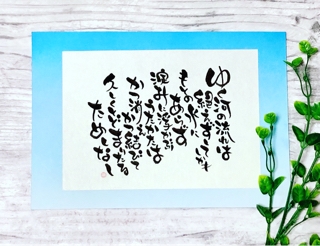 ゆく河の流れは
絶えずしいが
もとの水に
あらず
淀みに浮ぶ
うたかたは
かつ消えかつ結びて
久しくとどまりたる
ためしなし